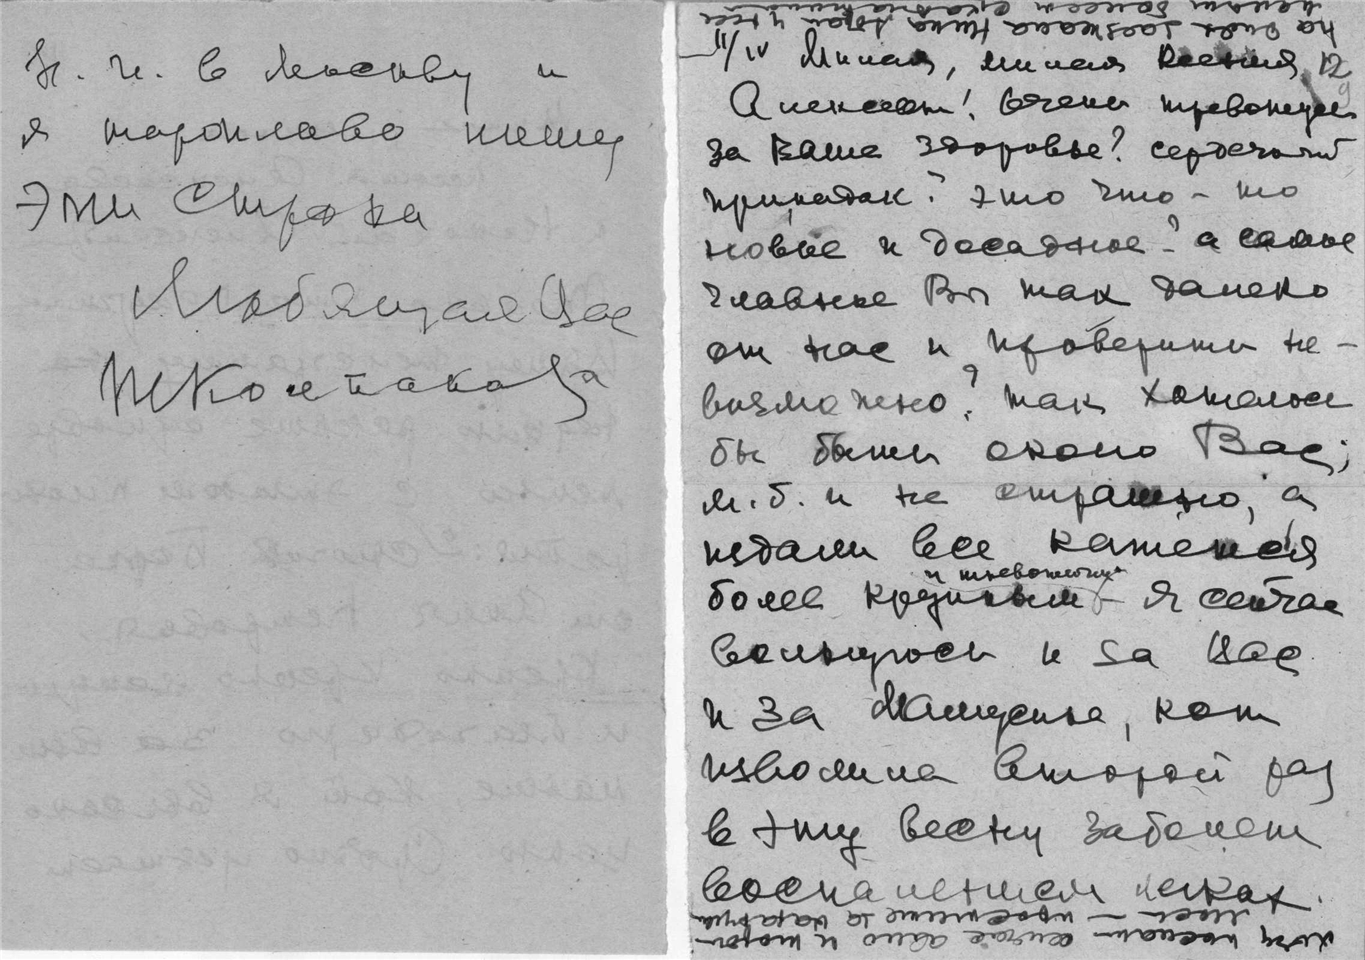 Н. И. в Москву и
я торопливо пишу
эти строки
Любящая Вас
Колпакова
II/IV Милая, милая Ксения
Алексеев! Очень тревожусь
за Ваше здоровье? сердечный
припадок? это что-то
новое и досадное? а самое
главное Вы так далеко
от нас и проверить не-
возможно? так хотелось
бы быть около Вас;
м. б. и не страшно, а
издали все кажется
и тревожным
более крупным – я сейчас
волнуюсь и за Вас
и за Машеньку, кот
изволила второй раз
в эту весну заболеть
воспалением легких.